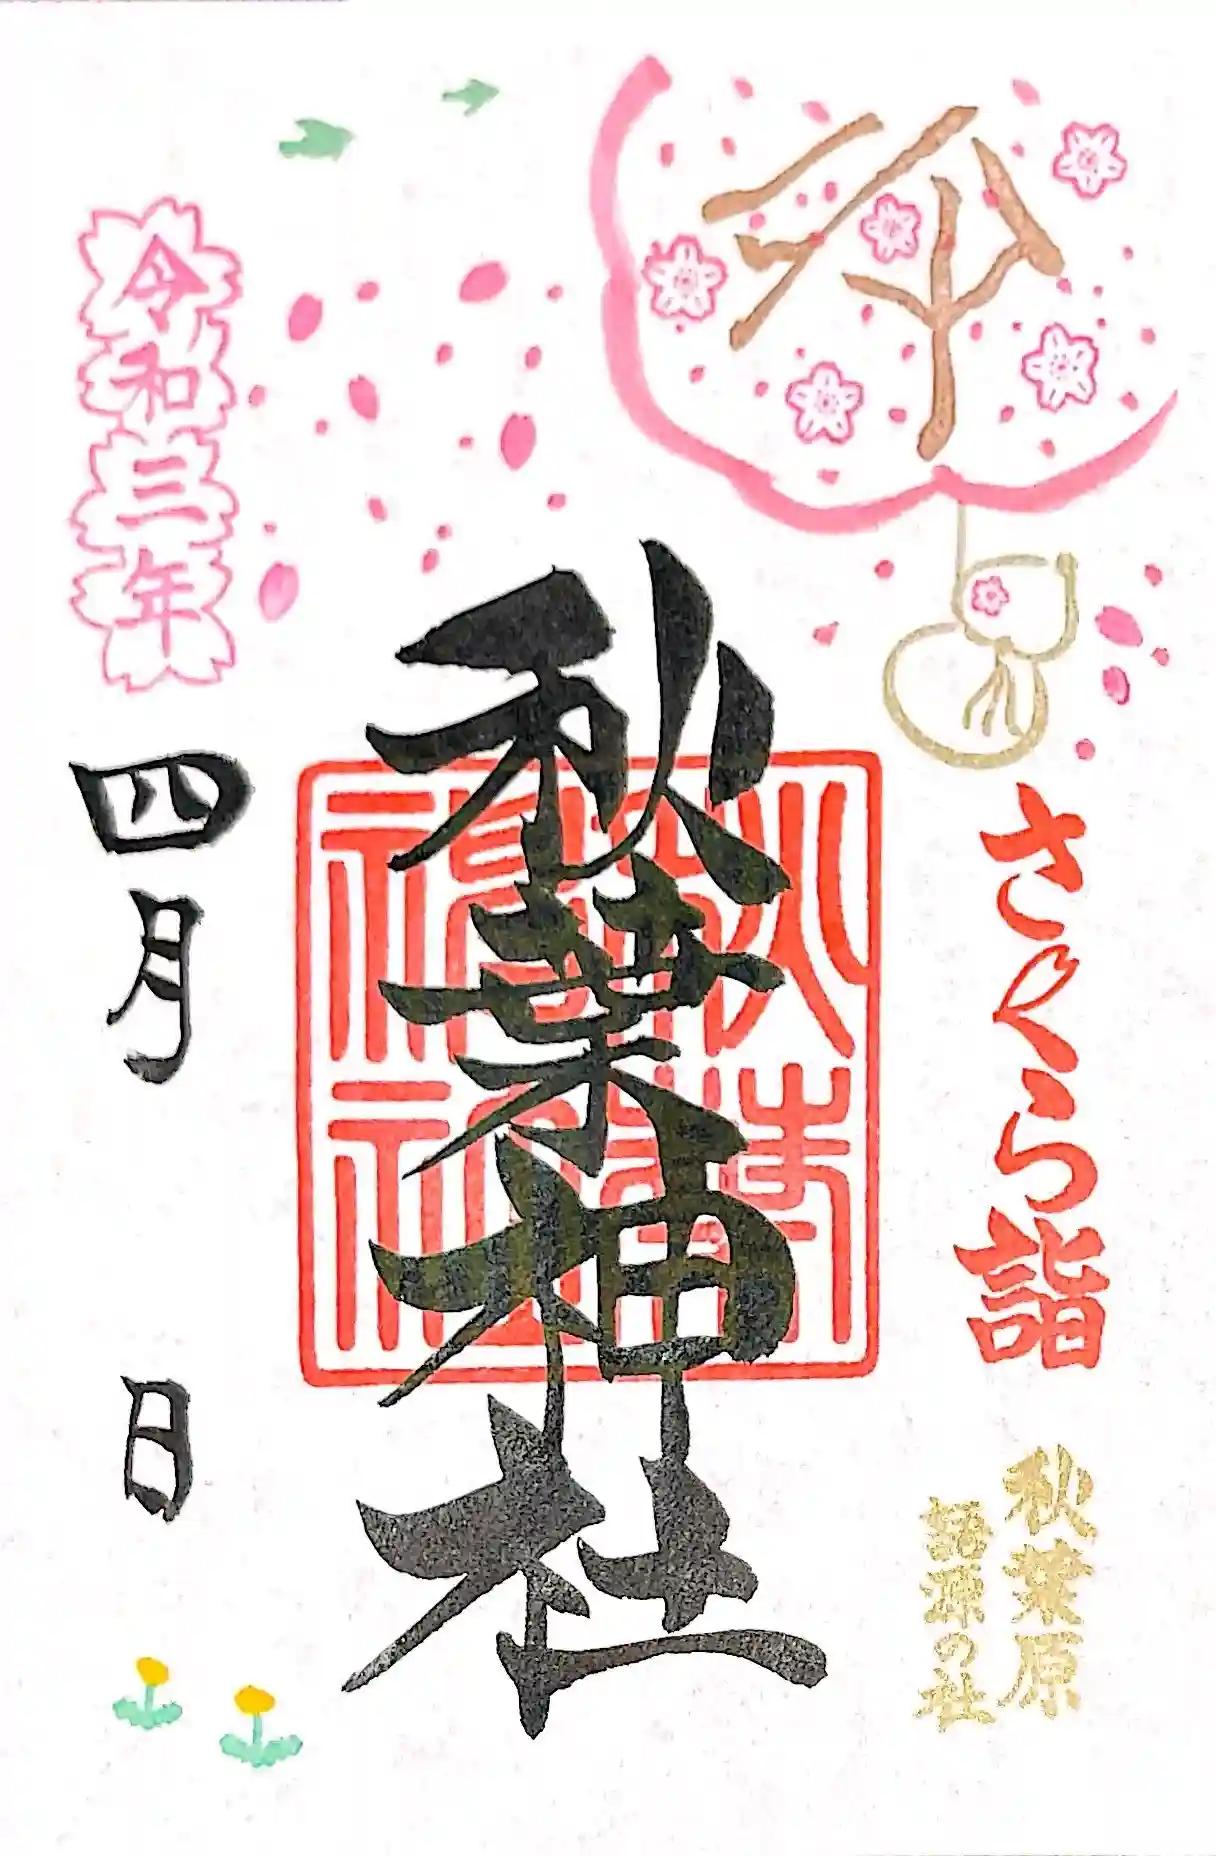 さくら詣
秋葉原
語源の社
秋葉神社
令和三年
四月 日